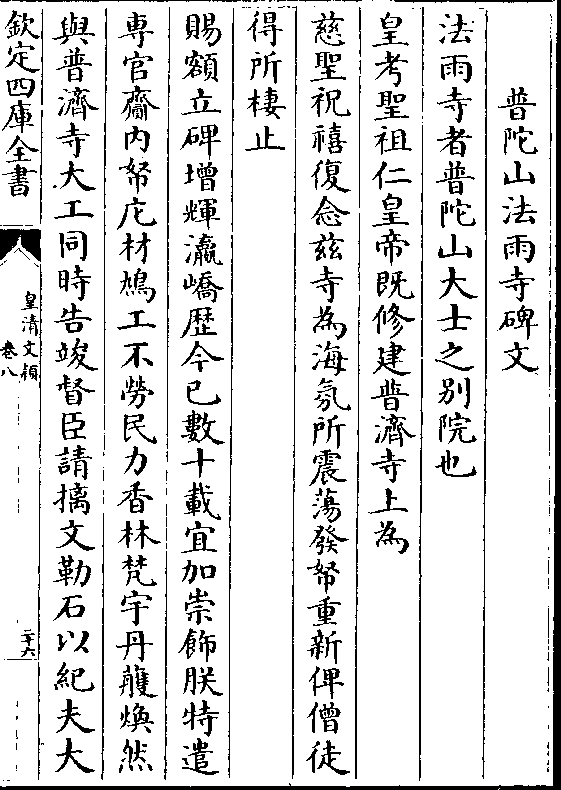 普陀山法雨寺碑文
法雨寺者普陀山大士之別院也
皇考聖祖仁皇帝既修建普濟寺上為
慈聖祝禧復念兹寺為海氛所震蕩發帑重新俾僧徒
得所棲止
賜額立碑增輝瀛嶠歴今已數十載宜加崇飾朕特遣
専官齎内帑庀材鳩工不勞民力香林梵宇丹雘煥然
與普濟寺大工同時告竣督臣請摛文勒石以紀夫大
欽定四庫全書
皇清文頴
卷八
二十六